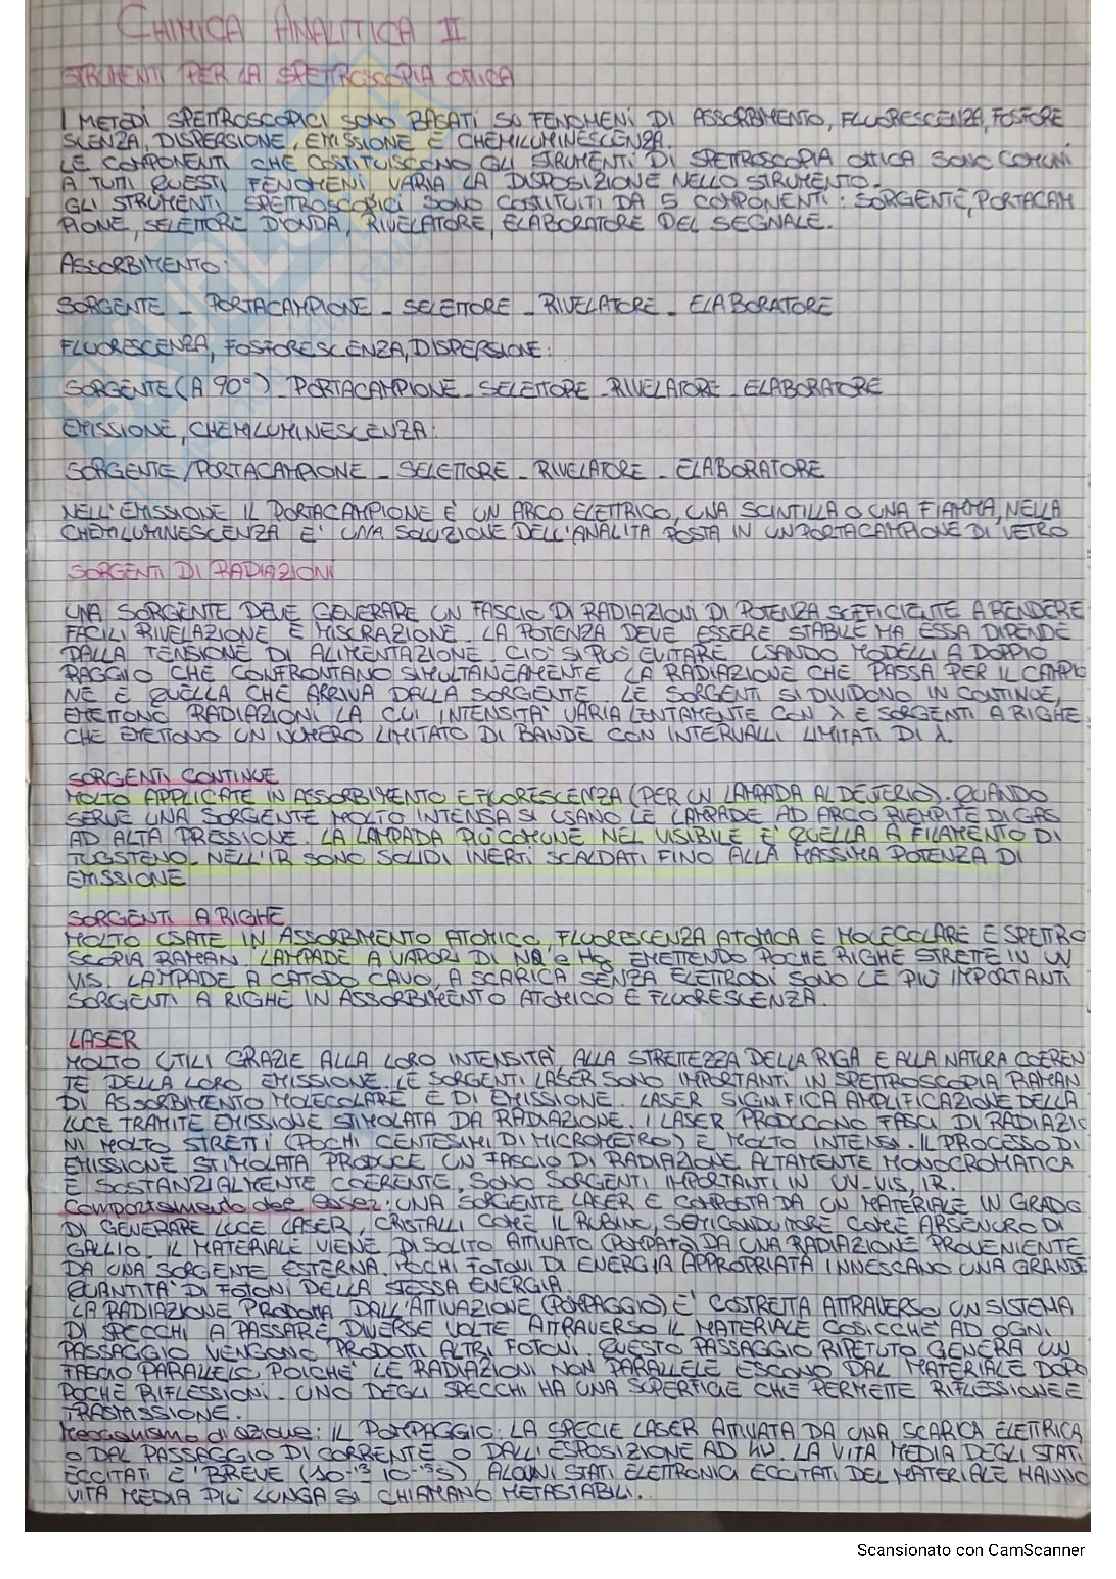 CHIMICA ANALITICA II
STRUMENTI PER LA SPETTROSCOPIA OTTICA
I METODI SPETTROSCOPICI SONO BASATI SU FENOMENI DI ASSORBIMENTO, FLUORESCENZA, FOSFORE
SCENZA, DISPERSIONE, EMISSIONE E CHEMILUMINESCENZA.
LE COMPONENTI CHE COSTITUISCONO GLI STRUMENTI DI SPETTROSCOPIA OTTICA SONO COMUNI
A TUTTI QUESTI FENOMENI, VARIA LA DISPOSIZIONE NELLO STRUMENTO.
GLI STRUMENTI SPETTROSCOPICI SONO COSTITUITI DA 5 COMPONENTI: SORGENTE, PORTACAM
PIONE, SELETTORE D'ONDA, RIVELATORE, ELABORATORE DEL SEGNALE.
ASSORBIMENTO:
SORGENTE - PORTACAMPIONE - SELETTORE - RIVELATORE - ELABORATORE
FLUORESCENZA, FOSFORESCENZA, DISPERSIONE:
SORGENTE (A 90°) - PORTACAMPIONE - SELETTORE - RIVELATORE - ELABORATORE
EMISSIONE, CHEMILUMINESCENZA:
SORGENTE/PORTACAMPIONE - SELETTORE - RIVELATORE - ELABORATORE
NELL'EMISSIONE IL PORTACAMPIONE E' UN ARCO ELETTRICO, UNA SCINTILLA O UNA FIAMMA, NELLA
CHEMILUMINESCENZA E' UNA SOLUZIONE DELL'ANALITA POSTA IN UN PORTACAMPIONE DI VETRO
SORGENTI DI RADIAZIONI
UNA SORGENTE DEVE GENERARE UN FASCIO DI RADIAZIONI DI POTENZA SUFFICIENTE A RENDERE
FACILI RIVELAZIONE E MISURAZIONE. LA POTENZA DEVE ESSERE STABILE MA ESSA DIPENDE
DALLA TENSIONE DI ALIMENTAZIONE. CIO' SI PUO' EVITARE USANDO MODELLI A DOPPIO
RAGGIO CHE CONFRONTANO SIMULTANEAMENTE LA RADIAZIONE CHE PASSA PER IL CAMPIO
NE E QUELLA CHE ARRIVA DALLA SORGENTE. LE SORGENTI SI DIVIDONO IN CONTINUE,
EMETTONO RADIAZIONI LA CUI INTENSITA' VARIA LENTAMENTE CON λ E SORGENTI A RIGHE,
CHE EMETTONO UN NUMERO LIMITATO DI BANDE CON INTERVALLI LIMITATI DI λ.
SORGENTI CONTINUE
MOLTO APPLICATE IN ASSORBIMENTO E FLUORESCENZA (PER UN LAMPADA AL DEUTERIO). QUANDO
SERVE UNA SORGENTE MOLTO INTENSA SI USANO LE LAMPADE AD ARCO RIEMPITE DI GAS
AD ALTA PRESSIONE. LA LAMPADA PIU' COMUNE NEL VISIBILE E' QUELLA A FILAMENTO DI
TUGSTENO. NELL'IR SONO SOLIDI INERTI SCALDATI FINO ALLA MASSIMA POTENZA DI
EMISSIONE
SORGENTI A RIGHE
MOLTO USATE IN ASSORBIMENTO ATOMICO, FLUORESCENZA ATOMICA E MOLECOLARE E SPETTRO
SCOPIA RAMAN. LAMPADE A VAPORI DI Na e Hg EMETTENDO POCHE RIGHE STRETTE IN UV
VIS. LAMPADE A CATODO CAVO, A SCARICA SENZA ELETTRODI SONO LE PIU' IMPORTANTI
SORGENTI A RIGHE IN ASSORBIMENTO ATOMICO E FLUORESCENZA.
LASER
MOLTO UTILI GRAZIE ALLA LORO INTENSITA', ALLA STRETTEZZA DELLA RIGA E ALLA NATURA COEREN
TE DELLA LORO EMISSIONE. LE SORGENTI LASER SONO IMPORTANTI IN SPETTROSCOPIA RAMAN
DI ASSORBIMENTO MOLECOLARE E DI EMISSIONE. LASER SIGNIFICA AMPLIFICAZIONE DELLA
LUCE TRAMITE EMISSIONE STIMOLATA DA RADIAZIONE. I LASER PRODUCONO FASCI DI RADIAZIO
NI MOLTO STRETTI (POCHI CENTESIMI DI MICROMETRO) E MOLTO INTENSI. IL PROCESSO DI
EMISSIONE STIMOLATA PRODUCE UN FASCIO DI RADIAZIONE ALTAMENTE MONOCROMATICA
E SOSTANZIALMENTE COERENTE. SONO SORGENTI IMPORTANTI IN UV-VIS, IR.
Comportamento del laser: UNA SORGENTE LASER E' COMPOSTA DA UN MATERIALE IN GRADO
DI GENERARE LUCE LASER, CRISTALLI COME IL RUBINO, SEMICONDUTTORE COME ARSENURO DI
GALLIO. IL MATERIALE VIENE DI SOLITO ATTIVATO (POMPATO) DA UNA RADIAZIONE PROVENIENTE
DA UNA SORGENTE ESTERNA. POCHI FOTONI DI ENERGIA APPROPRIATA INNESCANO UNA GRANDE
QUANTITA' DI FOTONI DELLA STESSA ENERGIA.
LA RADIAZIONE PRODOTTA DALL'ATTIVAZIONE (POMPAGGIO) E' COSTRETTA ATTRAVERSO UN SISTEMA
DI SPECCHI A PASSARE DIVERSE VOLTE ATTRAVERSO IL MATERIALE COSICCHE' AD OGNI
PASSAGGIO VENGONO PRODOTTI ALTRI FOTONI. QUESTO PASSAGGIO RIPETUTO GENERA UN
FASCIO PARALLELO, POICHE' LE RADIAZIONI NON PARALLELE ESCONO DAL MATERIALE DOPO
POCHE RIFLESSIONI. UNO DEGLI SPECCHI HA UNA SUPERFICIE CHE PERMETTE RIFLESSIONE E
TRASMISSIONE.
Meccanismo di azione: IL POMPAGGIO: LA SPECIE LASER ATTIVATA DA UNA SCARICA ELETTRICA
O DAL PASSAGGIO DI CORRENTE O DALL'ESPOSIZIONE AD hν. LA VITA MEDIA DEGLI STATI
ECCITATI E' BREVE (10⁻¹³ 10⁻¹⁵s), ALCUNI STATI ELETTRONICI ECCITATI DEL MATERIALE HANNO
VITA MEDIA PIU' LUNGA SI CHIAMANO METASTABILI.
Scansionato con CamScanner